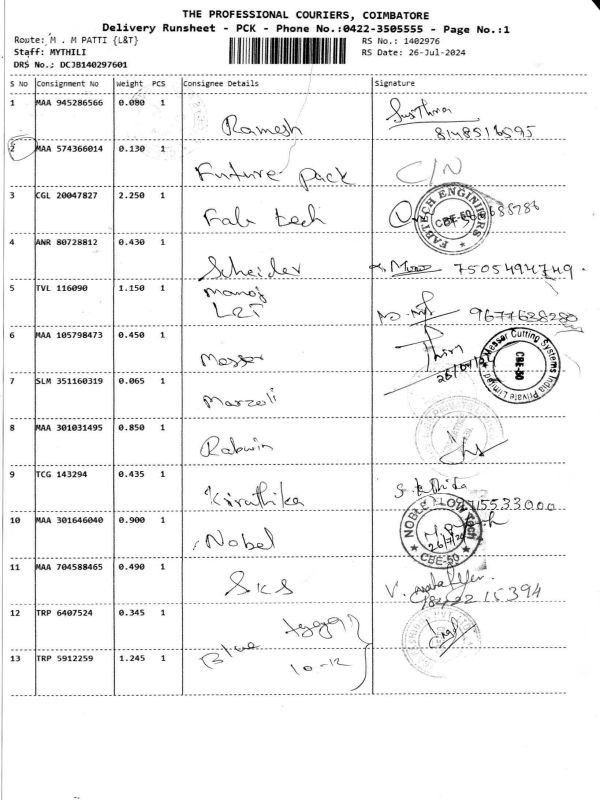 THE PROFESSIONAL COURIERS, COIMBATORE
Delivery Runsheet - PCK - Phone No.:0422-3505555 - Page No.:1
Route: M . M PATTI {L&T} RS No.: 1402976
Staff: MYTHILI RS Date: 26-Jul-2024
DRS No.: DCJB140297601
S No Consignment No Weight PCS Consignee Details Signature
1 MAA 945286566 0.080 1 Ramesh
8148516595
2 MAA 574366014 0.130 1 Future pack C/N
3 CGL 20047827 2.250 1 Fab tech FABTECH ENGINEERS CBE-50
4 ANR 80728812 0.430 1 Scheider 7505494749.
5 TVL 116090 1.150 1 Manoj
L&T 9677638280
6 MAA 105798473 0.450 1 Messer Messer Cutting Systems India Private Limited CBE-50
7 SLM 351160319 0.065 1 Marzoli
8 MAA 301031495 0.850 1 Rabwin
9 TCG 143294 0.435 1 Kiruthika
10 MAA 301646040 0.900 1 Nobel NOBLE FLOW TECH CBE-50
11 MAA 704588465 0.490 1 SKS V.
12 TRP 6407524 0.345 1
13 TRP 5912259 1.245 1 Blue
10-12